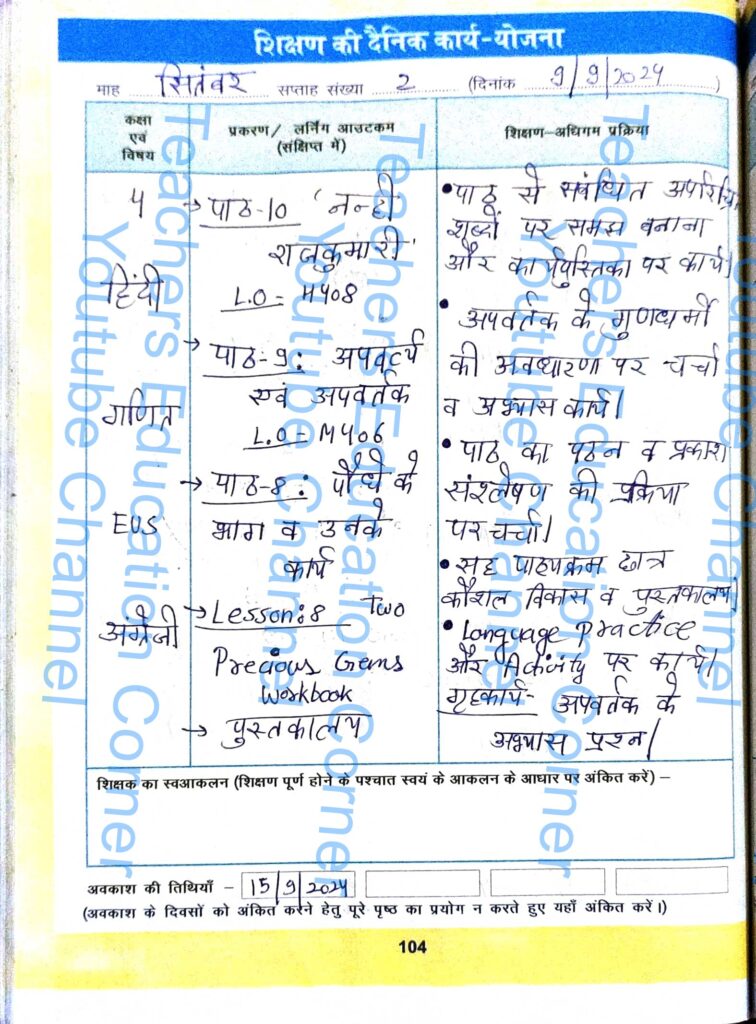 शिक्षण की दैनिक कार्य-योजना
माह सितंबर सप्ताह संख्या 2 (दिनांक 9/9/2024)
कक्षा एवं विषय
प्रकरण/ लर्निंग आउटकम (संक्षिप्त में)
शिक्षण-अधिगम प्रक्रिया
4
हिंदी
गणित
EVS
अंग्रेजी
→ पाठ-10 'नन्ही
राजकुमारी'
L.O = H408
→ पाठ-9: अपवर्त्य
एवं अपवर्तक
L.O = M406
→ पाठ-8: पौधे के
भाग व उनके
कार्य
→ Lesson:8 Two
Precious Gems
Workbook
→ पुस्तकालय
• पाठ से संबंधित अपरिचित
शब्दों पर समझ बनाना
और कार्यपुस्तिका पर कार्य।
• अपवर्तक के गुणधर्मों
की अवधारणा पर चर्चा
व अभ्यास कार्य।
• पाठ का पठन व प्रकाश
संश्लेषण की प्रक्रिया
पर चर्चा।
• सह पाठ्यक्रम छात्र
कौशल विकास व पुस्तकालय
• Language Practice
और Activity पर कार्य।
गृहकार्य- अपवर्तक के
अभ्यास प्रश्न।
शिक्षक का स्वआकलन (शिक्षण पूर्ण होने के पश्चात स्वयं के आकलन के आधार पर अंकित करें) –
अवकाश की तिथियाँ – 15/9/2024
(अवकाश के दिवसों को अंकित करने हेतु पूरे पृष्ठ का प्रयोग न करते हुए यहाँ अंकित करें।)
104
Teachers Education Corner
Youtube Channel
Teachers Education Corner
Youtube Channel
Teachers Education Corner
Youtube Channel